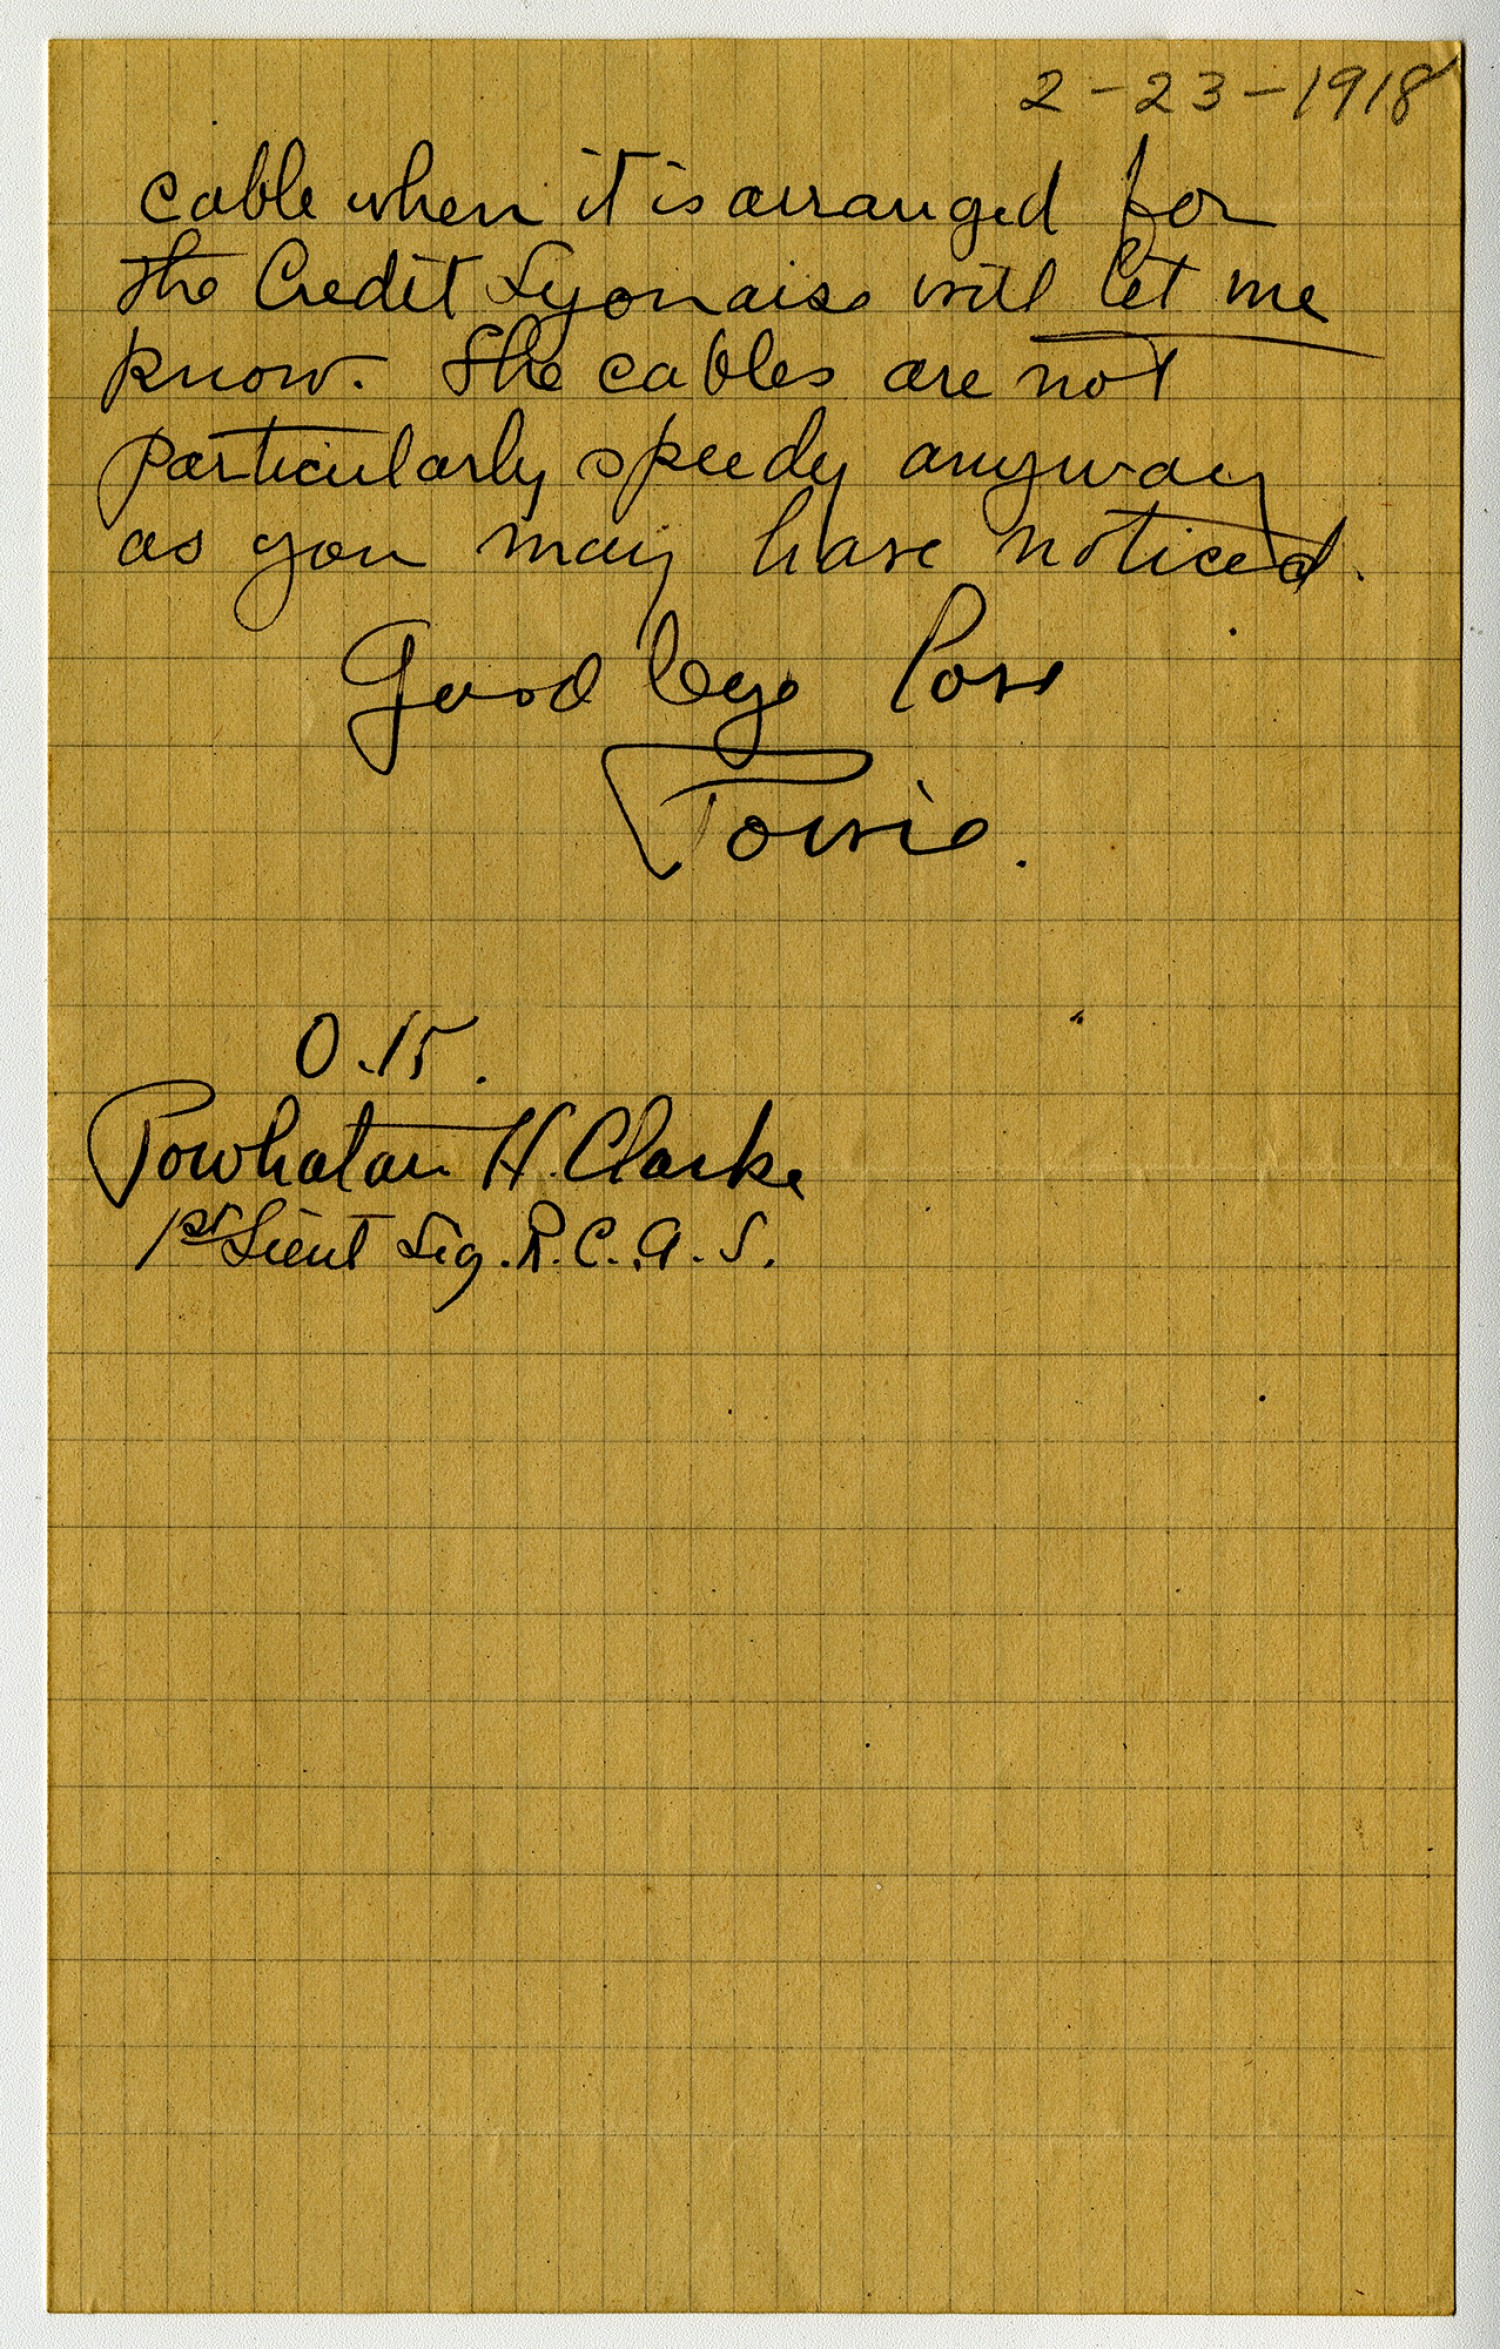 2-23-1918
cable when it is arranged for
the Credit Lyonaise will let me
know. The cables are not
particularly speedy anyway
as you may have noticed.
Good bye Love
Powie.
O.K.
Powhatan H. Clarke
1st Lieut Sig. R.C.A.S.